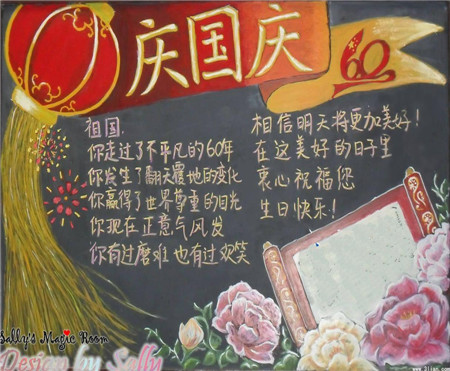 庆国庆
60
祖国,
你走过了不平凡的60年
你发生了翻天震地的变化
你赢得了世界尊重的目光
你现在正意气风发
你有过磨难也有过欢笑
相信明天将更加美好!
在这美好的日子里
衷心祝福您
生日快乐!
Sally's Magic Room
Design by Sally